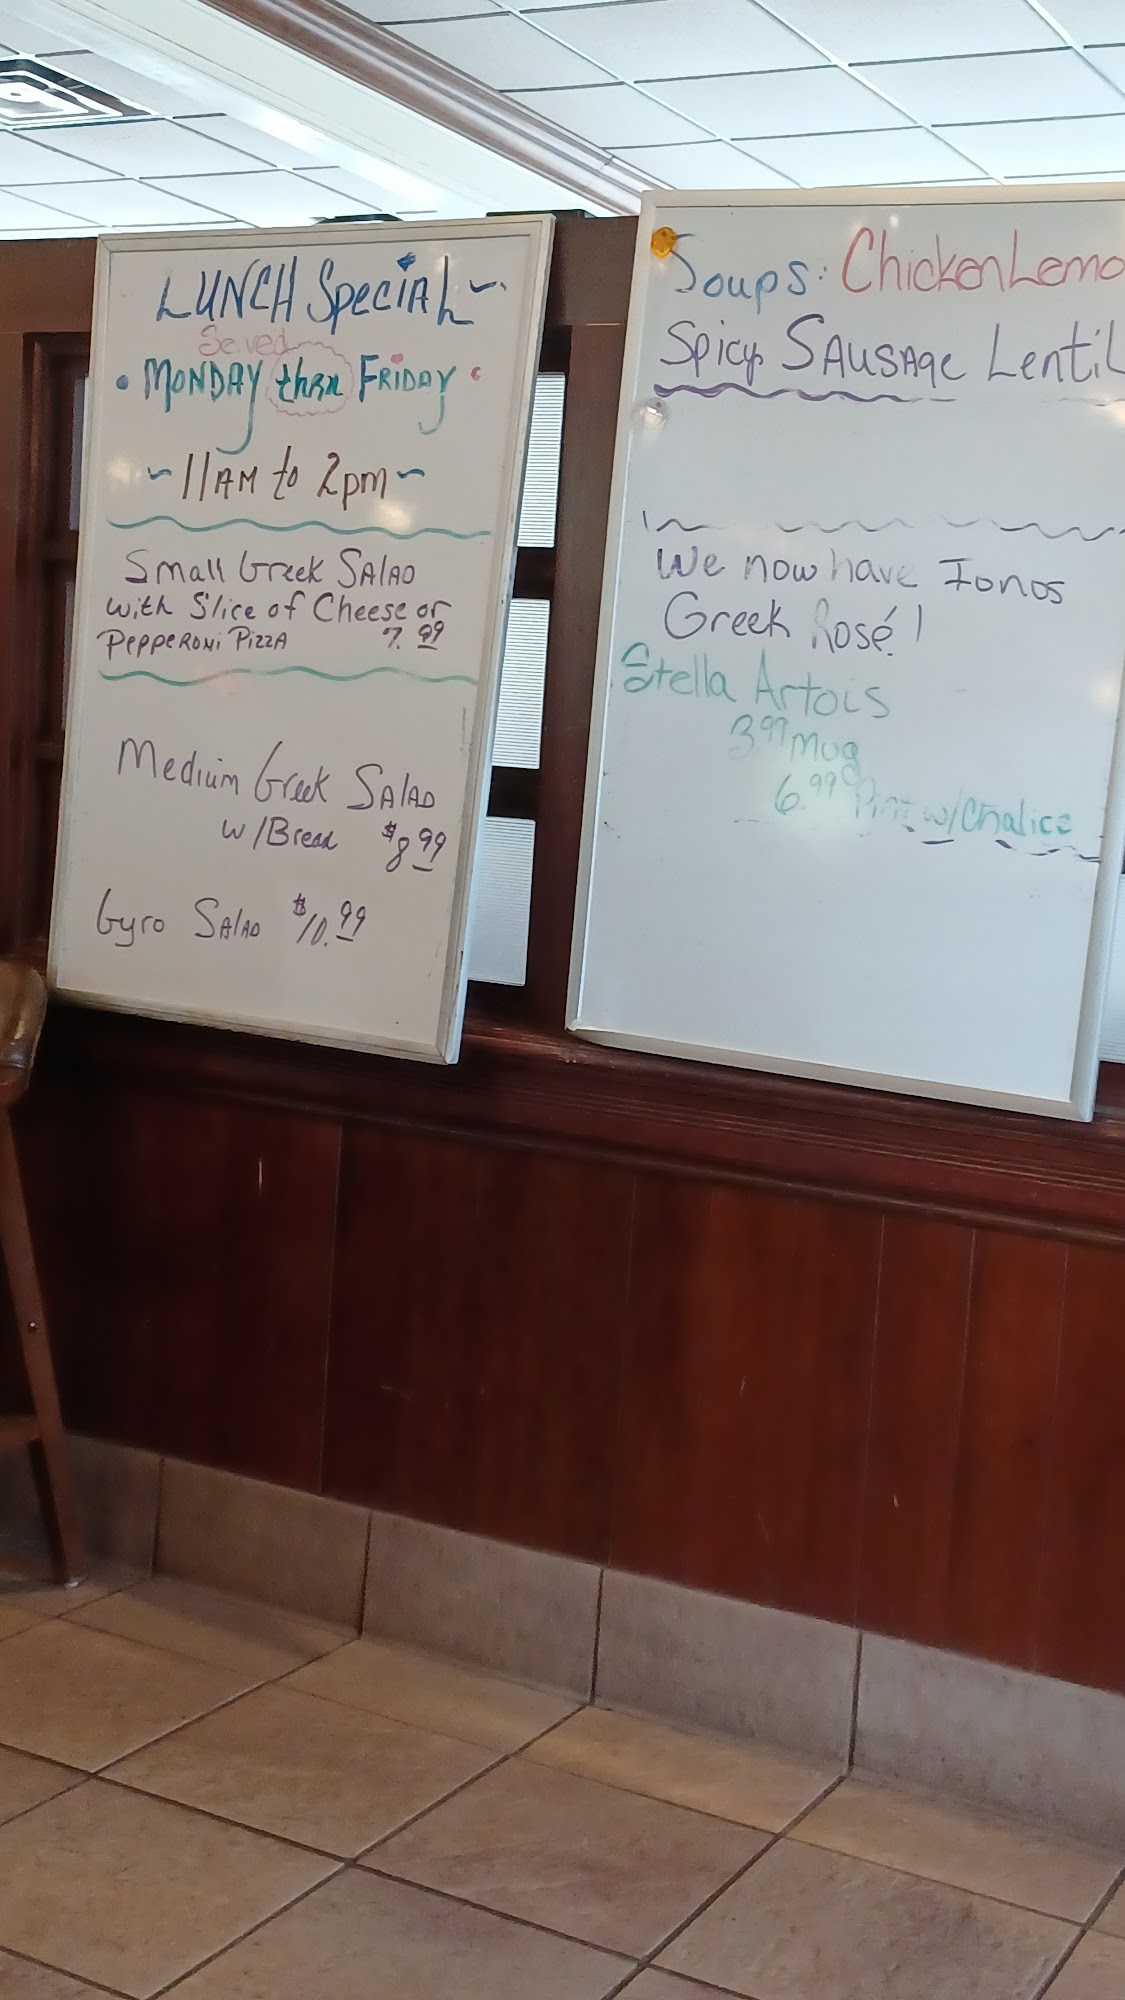 LUNCH Special
Served
MONDAY thru FRIDAY
~11AM to 2pm~
Small Greek Salad
with Slice of Cheese or
Pepperoni Pizza 7.99
Medium Greek Salad
w/Bread $8.99
Gyro Salad $10.99
Soups: Chicken Lemo
Spicy Sausage Lentil
We now have Ionos
Greek Rosé!
Stella Artois
3.99 Mug
6.99 Pint w/Chalice